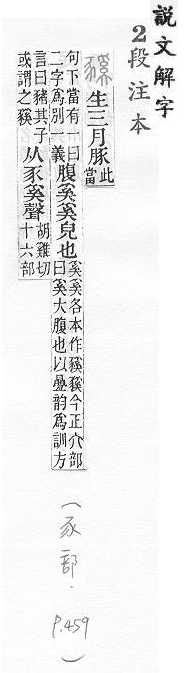 説文解字
2段注本
豯 生三月豚 此
當
句下當有一曰
二字爲別一義 腹奚奚皃也 奚奚各本作豯豯今正亣部
曰奚大腹也以疊韵爲訓方
言曰豬其子
或謂之豯 从豕奚聲 胡雞切
十六部
(豕部. P.459)